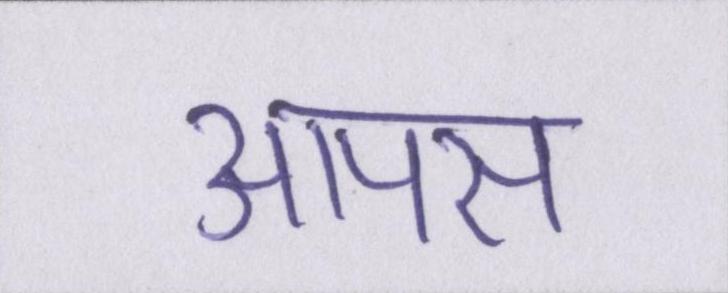 आपस